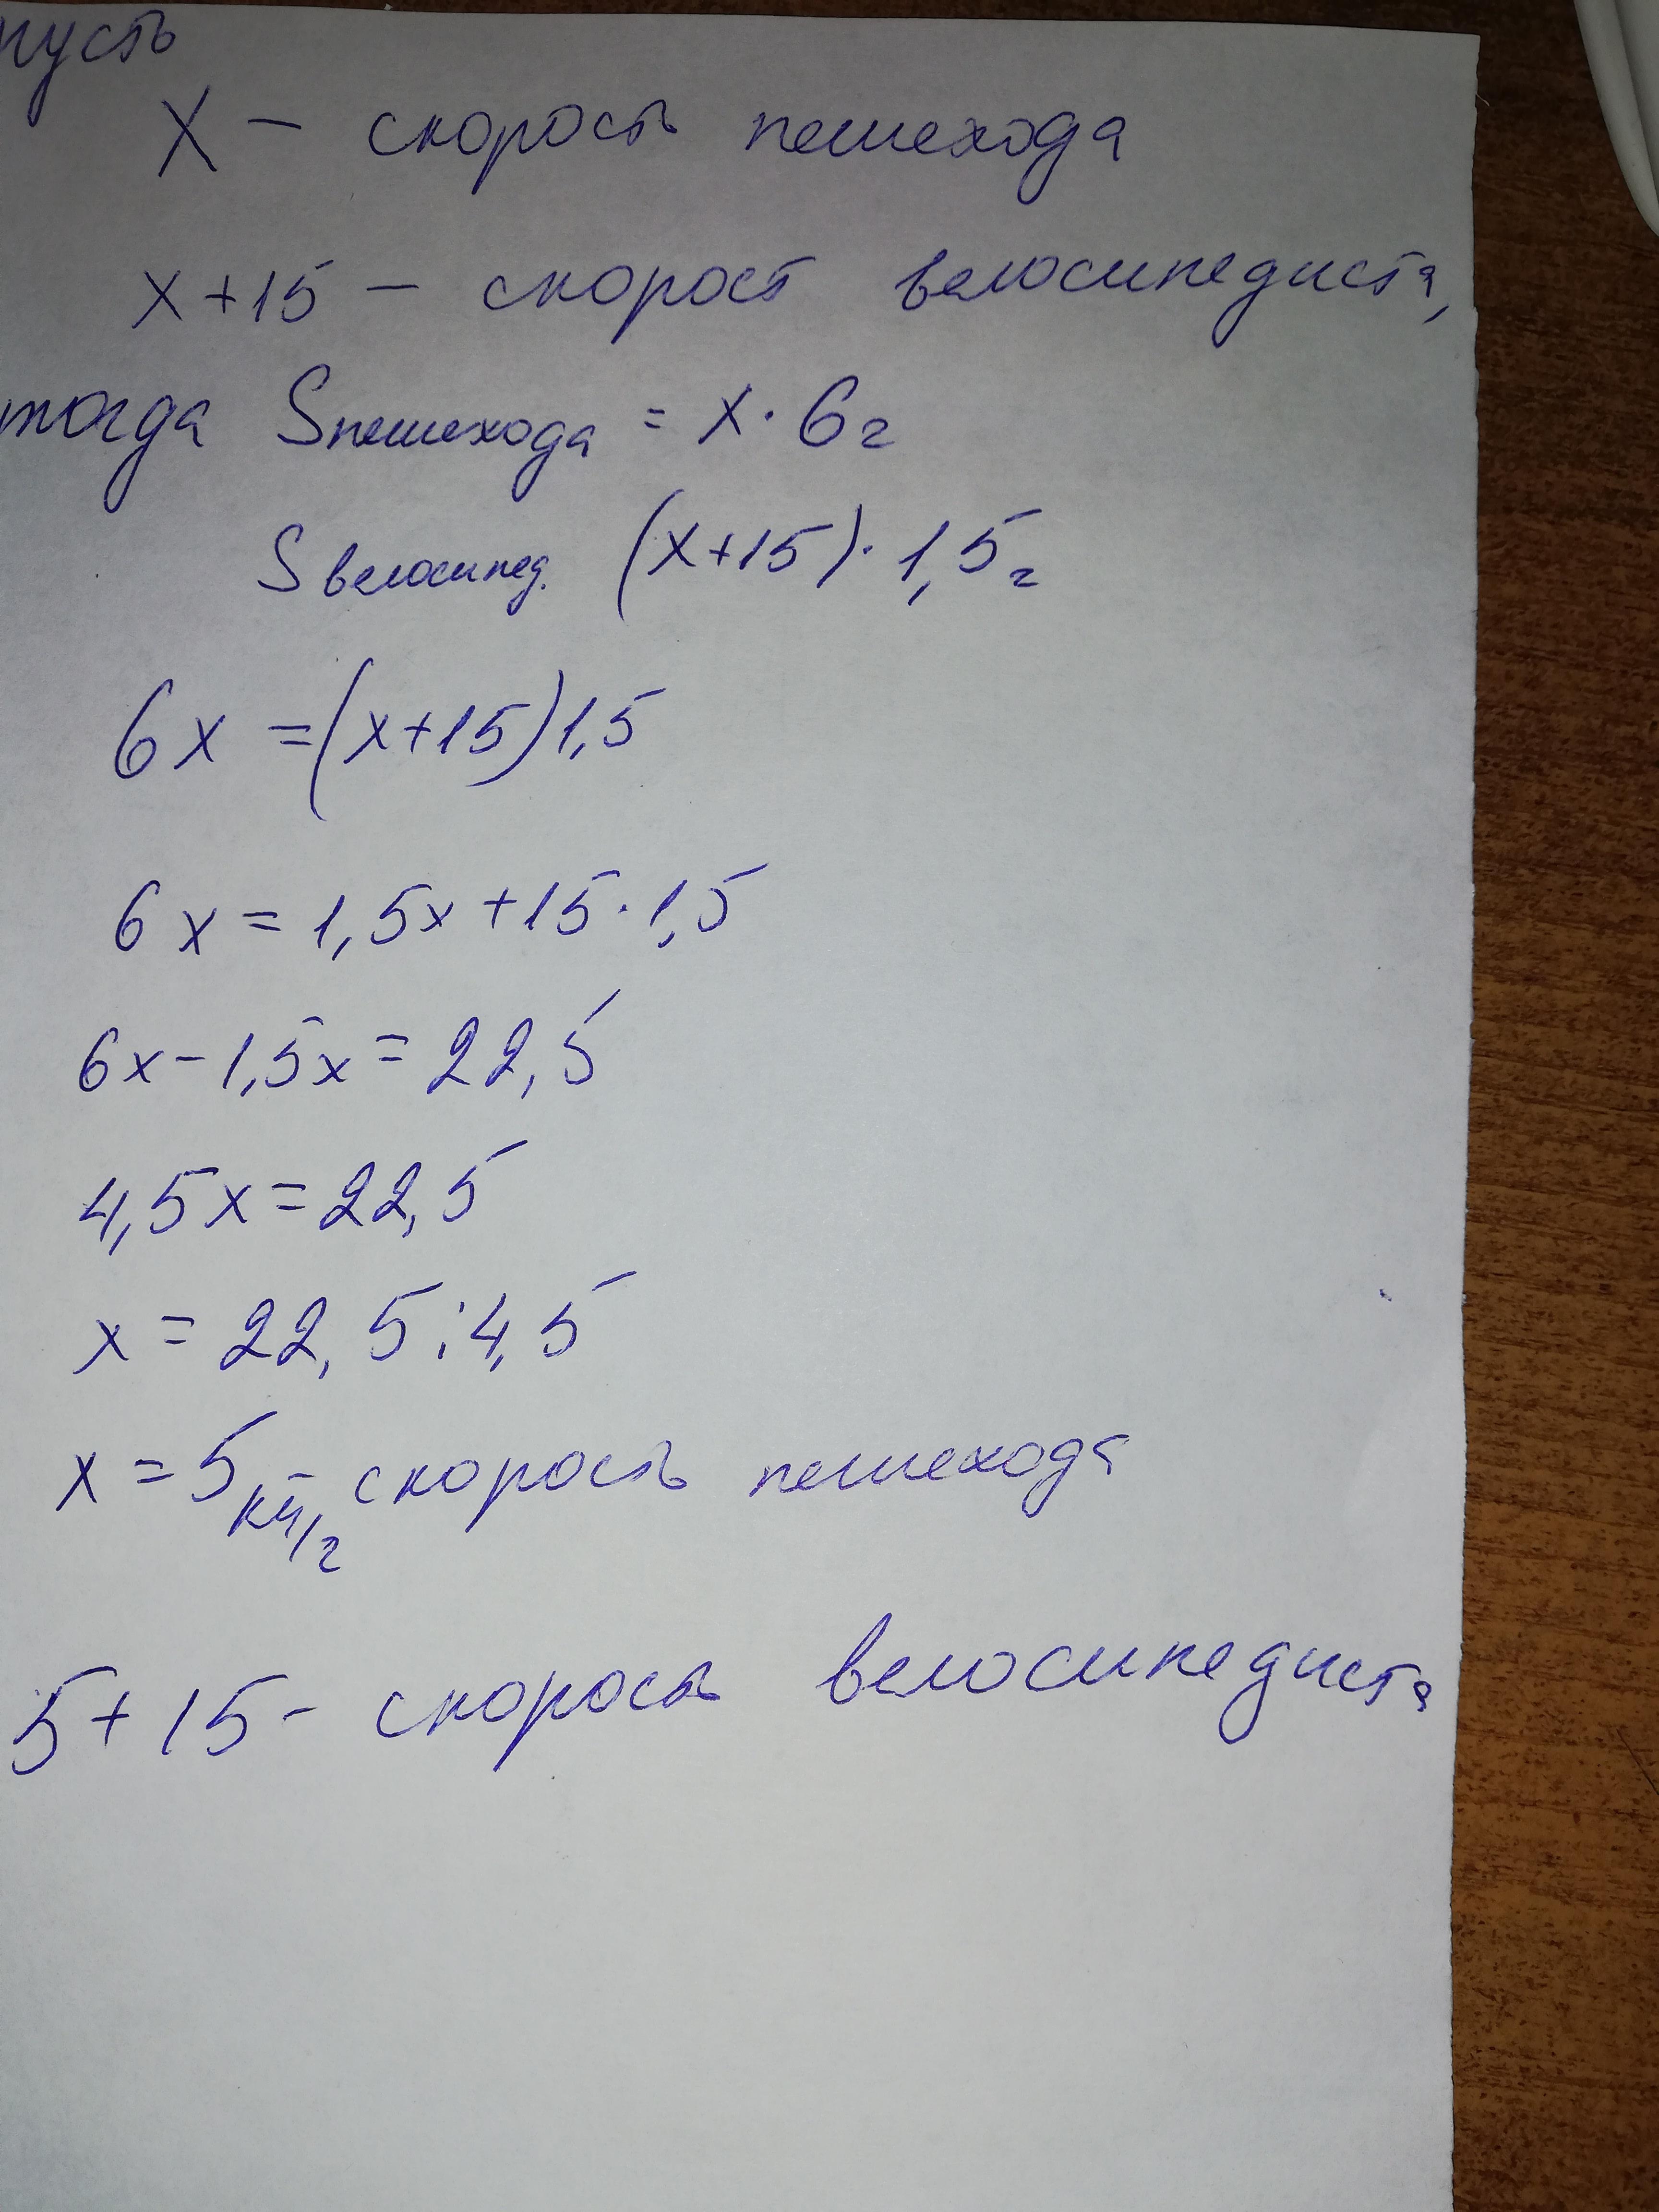 пусть
X – скорость пешехода
x+15 – скорост велосипедиста,
тогда Sпешехода = x · 6г
Sвелосипед. (x+15) · 1,5г
6x =(x+15)1,5
6x = 1,5x+15·1,5
6x-1,5x = 22,5
4,5x = 22,5
x = 22,5:4,5
x = 5 км/г скорость пешехода
5+15- скорость велосипедиста